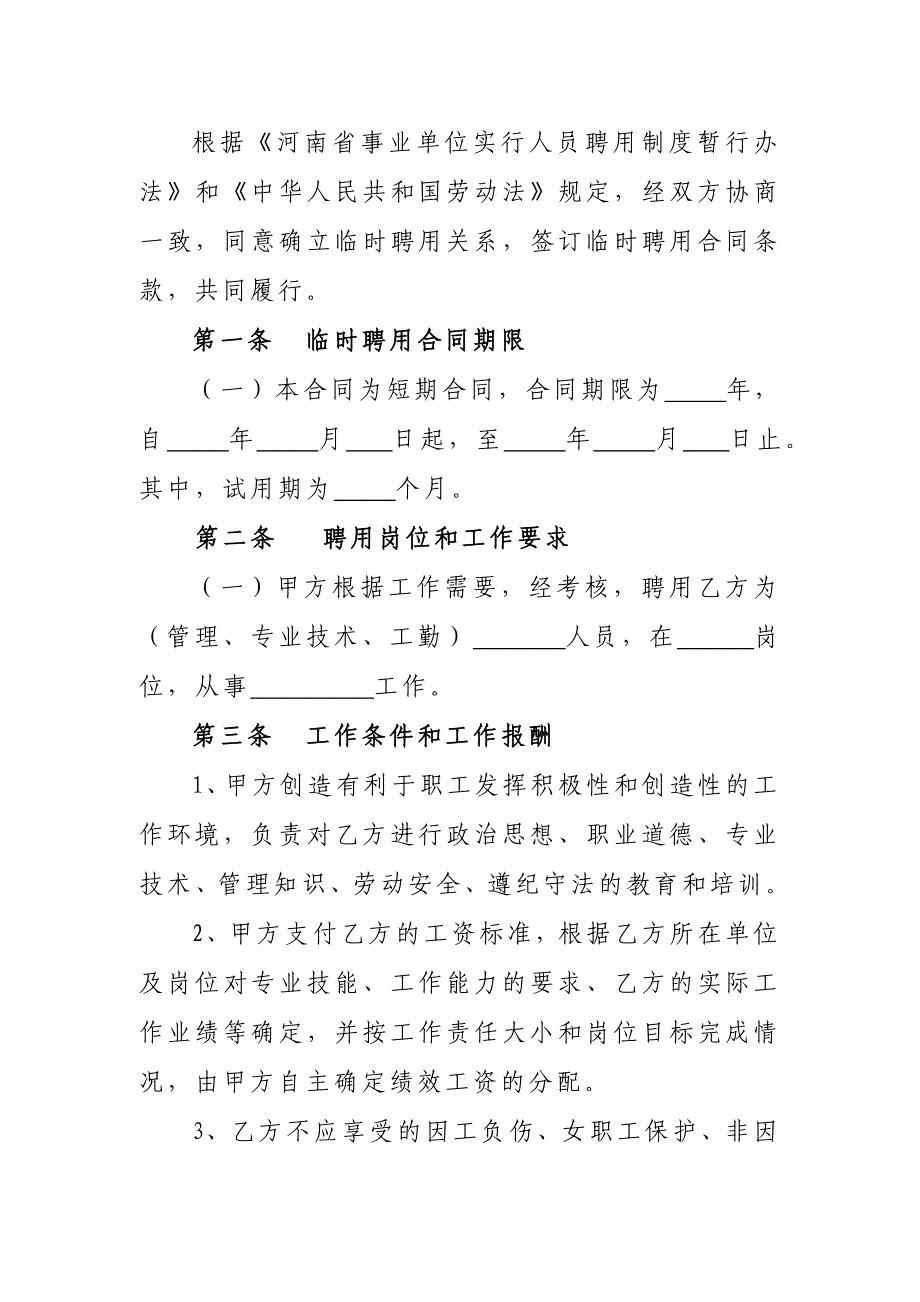 根据《河南省事业单位实行人员聘用制度暂行办
法》和《中华人民共和国劳动法》规定，经双方协商
一致，同意确立临时聘用关系，签订临时聘用合同条
款，共同履行。
第一条 临时聘用合同期限
（一）本合同为短期合同，合同期限为____年，
自____年____月___日起，至____年____月___日止。
其中，试用期为____个月。
第二条 聘用岗位和工作要求
（一）甲方根据工作需要，经考核，聘用乙方为
（管理、专业技术、工勤）______人员，在_____岗
位，从事________工作。
第三条 工作条件和工作报酬
1、甲方创造有利于职工发挥积极性和创造性的工
作环境，负责对乙方进行政治思想、职业道德、专业
技术、管理知识、劳动安全、遵纪守法的教育和培训。
2、甲方支付乙方的工资标准，根据乙方所在单位
及岗位对专业技能、工作能力的要求、乙方的实际工
作业绩等确定，并按工作责任大小和岗位目标完成情
况，由甲方自主确定绩效工资的分配。
3、乙方不应享受的因工负伤、女职工保护、非因